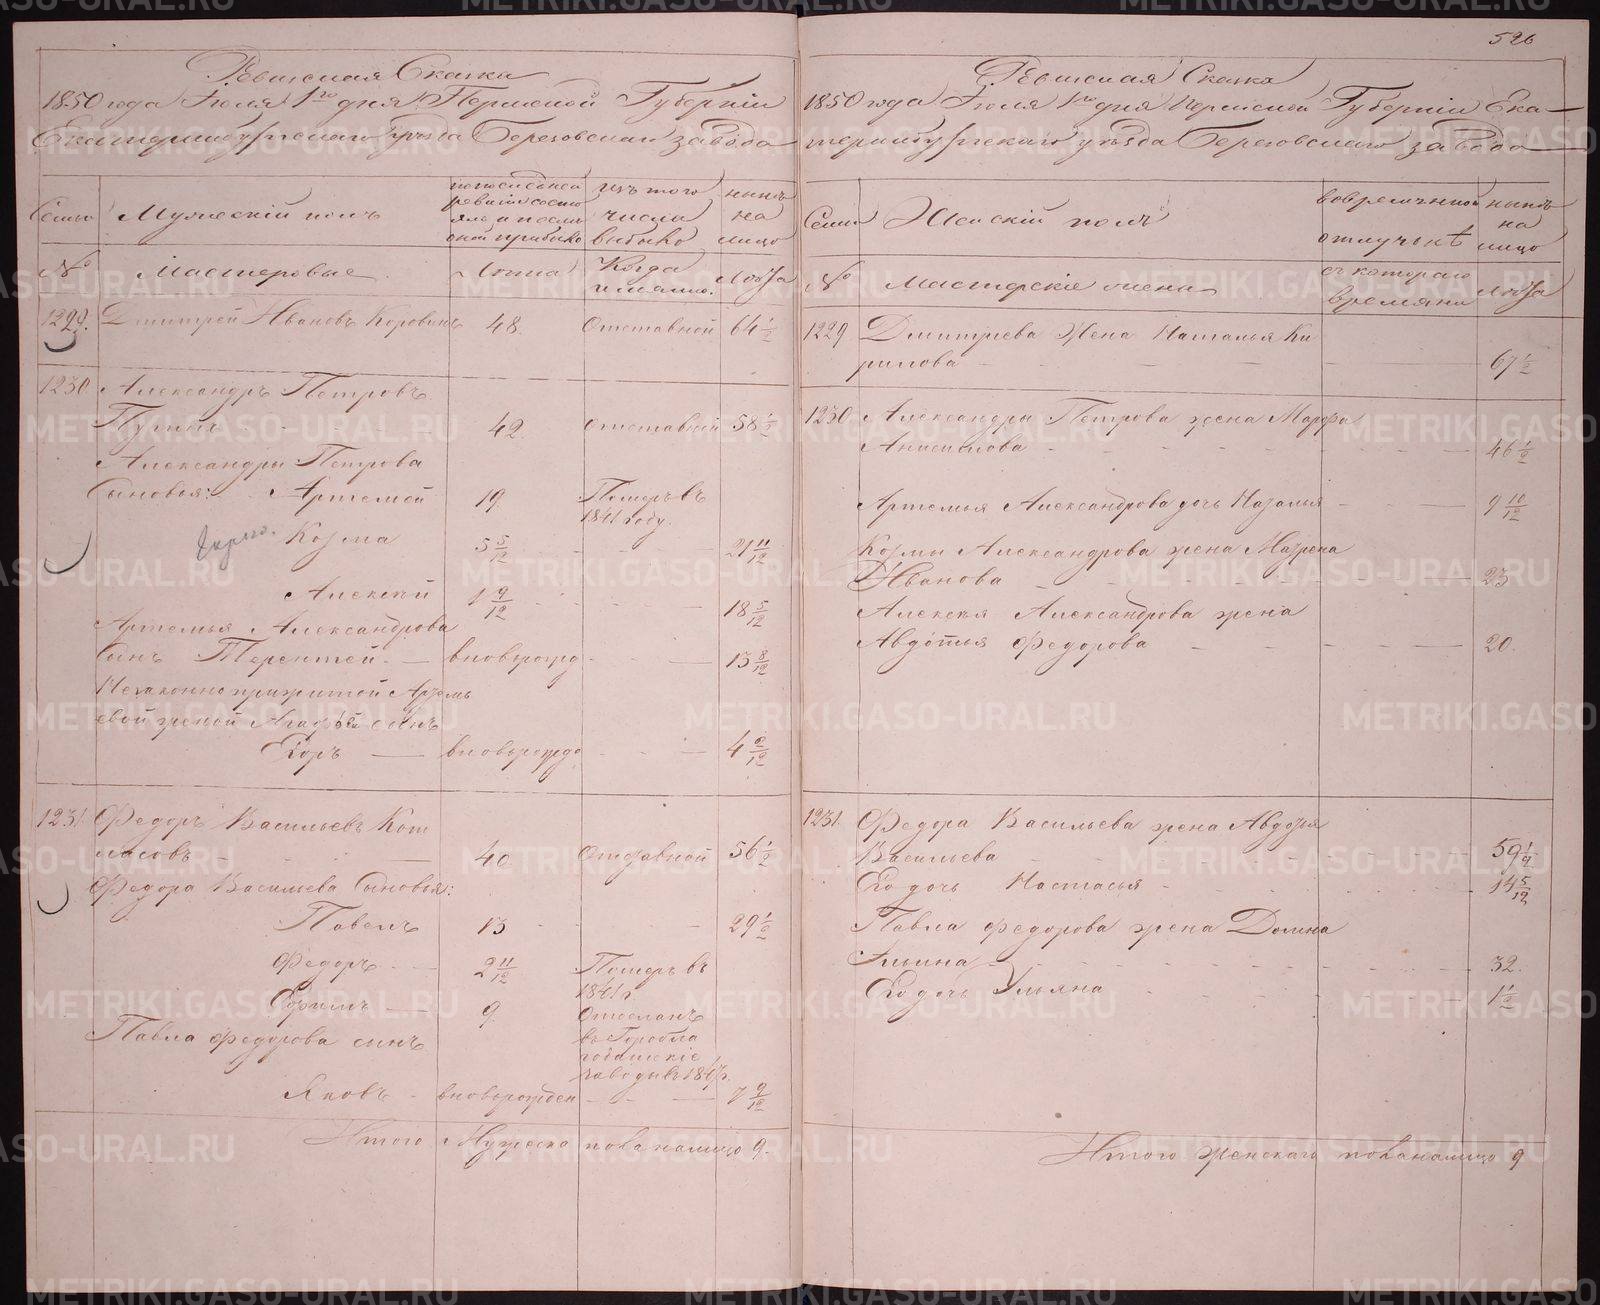 Ревизская Сказка
1850 года Іюля 1го дня Пермской Губерніи
Екатеринбургскаго уѣзда Березовскаго завода
Семьи
Мужеской полъ
по последней ревизіи состояло и после оной прибыло
изъ того числа выбыло
нынѣ на лицо
№
Мастеровые
Лѣта
Когда именно.
Лѣта
1229. Дмитрей Ивановъ Коровинъ 48. Отставной 64 1/2
1230. Александръ Петровъ
42. Отставной 58 1/2
Александры Петрова
Сыновья: Артемей 19 Померъ въ
1841 году.
Козма 5 5/12 21 11/12
Алексѣй 1 9/12 18 5/12
Артемья Александрова
Сынъ Терентей. — вновьрожд 13 8/12
Незаконно прижитой Артемь
евой женой Агафьей сынъ
Егоръ — вновьрожде 4 9/12
1231. Федоръ Васильевъ Кот
ласовъ 40 Отставной 56 1/2
Федора Васильева Сыновья:
Павелъ 13 29 1/2
Федоръ 2 11/12 Померъ въ
1841 г
Ефимъ 9 Отосланъ
въ Гороблагодатскіе
заводы въ 1847.
Павла Федорова сынъ
Яковъ - вновьрожден 7 9/12
Итого Мужеска пола налицо 9.
526
Ревизская Сказка
1850 года Іюля 1го дня Пермской Губерніи Ека-
теринбургскаго уѣзда Березовскаго завода
Семьи
Женскій полъ
во временной отлучкѣ
нынѣ на лицо
№
Мастерскіе жены
съ котораго времяни
Лѣта
1229 Дмитріева Жена Наталья Ки
рилова 67 1/2
1230 Александры Петрова жена Марфа
Анисимова 46 1/2
Артемья Александрова дочь Наталья 9 10/12
Козмы Александрова жена Матрена
Иванова 23
Алексея Александрова жена
Авдотья Федорова 20.
1231. Федора Васильева жена Авдотья
Васильева 59 1/4
Его дочь Настасья 14 5/12
Павла Федорова жена Домна
Ильина 32.
Его дочь Ульяна 1 1/2
Итого женскаго пола налицо 9
METRIKI.GASO-URAL.RU